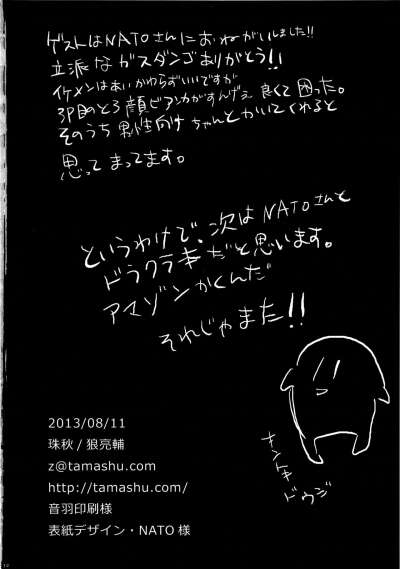 ゲストはNATOさんにおねがいしました!!
立派なガスダンゴありがとう!!
イケメンはあいかわらずいいですが
3P目のとろ顔ビアンカがすんげえ良くて困った。
そのうち男性向けちゃんとかいてくれると
思ってまってます。
というわけで、次はNATOさんと
ドラクラ本だと思います。
アマゾンかくんだ
それじゃまた!!
ナントカ
ドウジ
2013/08/11
珠秋/狼亮輔
z@tamashu.com
http://tamashu.com/
音羽印刷様
表紙デザイン・NATO様
12